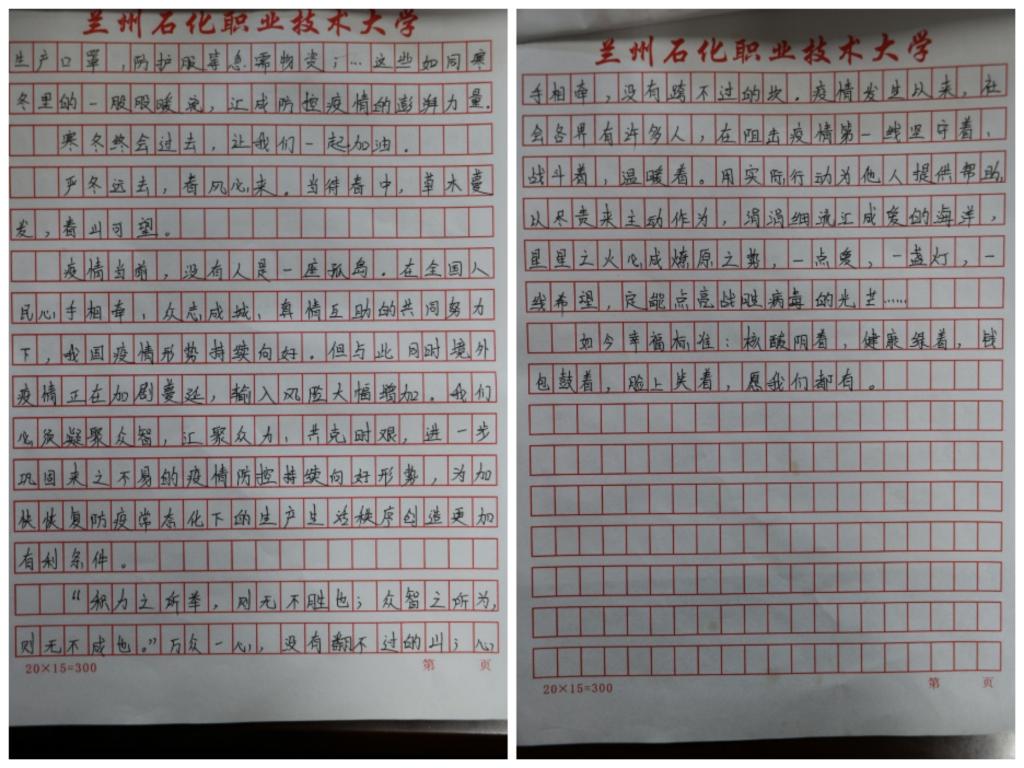 兰州石化职业技术大学
生产口罩,防护服等急需物资;…这些如同寒
冬里的一股股暖流,汇成防控疫情的澎湃力量.
寒冬终会过去,让我们一起加油.
严冬远去,春风心来。当待春中,草木蔓
发,春山可望。
疫情当前,没有人是一座孤岛.在全国人
民心手相牵、众志成城、真情互助的共同努力
下,我国疫情形势持续向好.但与此同时境外
疫情正在加剧蔓延,输入风险大幅增加.我们
必须凝聚众智,汇聚众力,共克时艰,进一步
巩固来之不易的疫情防控持续向好形势,为加
快恢复防疫常态化下的生产生活秩序创造更加
有利条件。
“积力之所举,则无不胜也;众智之所为,
则无不成也。”万众一心,没有翻不过的山;心
20×15=300
第 页
兰州石化职业技术大学
手相牵,没有跨不过的坎.疫情发生以来,社
会各界有许多人,在阻击疫情第一线坚守着、
战斗着,温暖着。用实际行动为他人提供帮助,
以尽责来主动作为,涓涓细流汇成爱的海洋,
星星之火必成燎原之势,一点爱,一盏灯,一
线希望,定能点亮战胜病毒的光芒……
如今幸福标准:核酸阴着,健康绿着,钱
包鼓着,脸上笑着,愿我们都有。
20×15=300
第 页